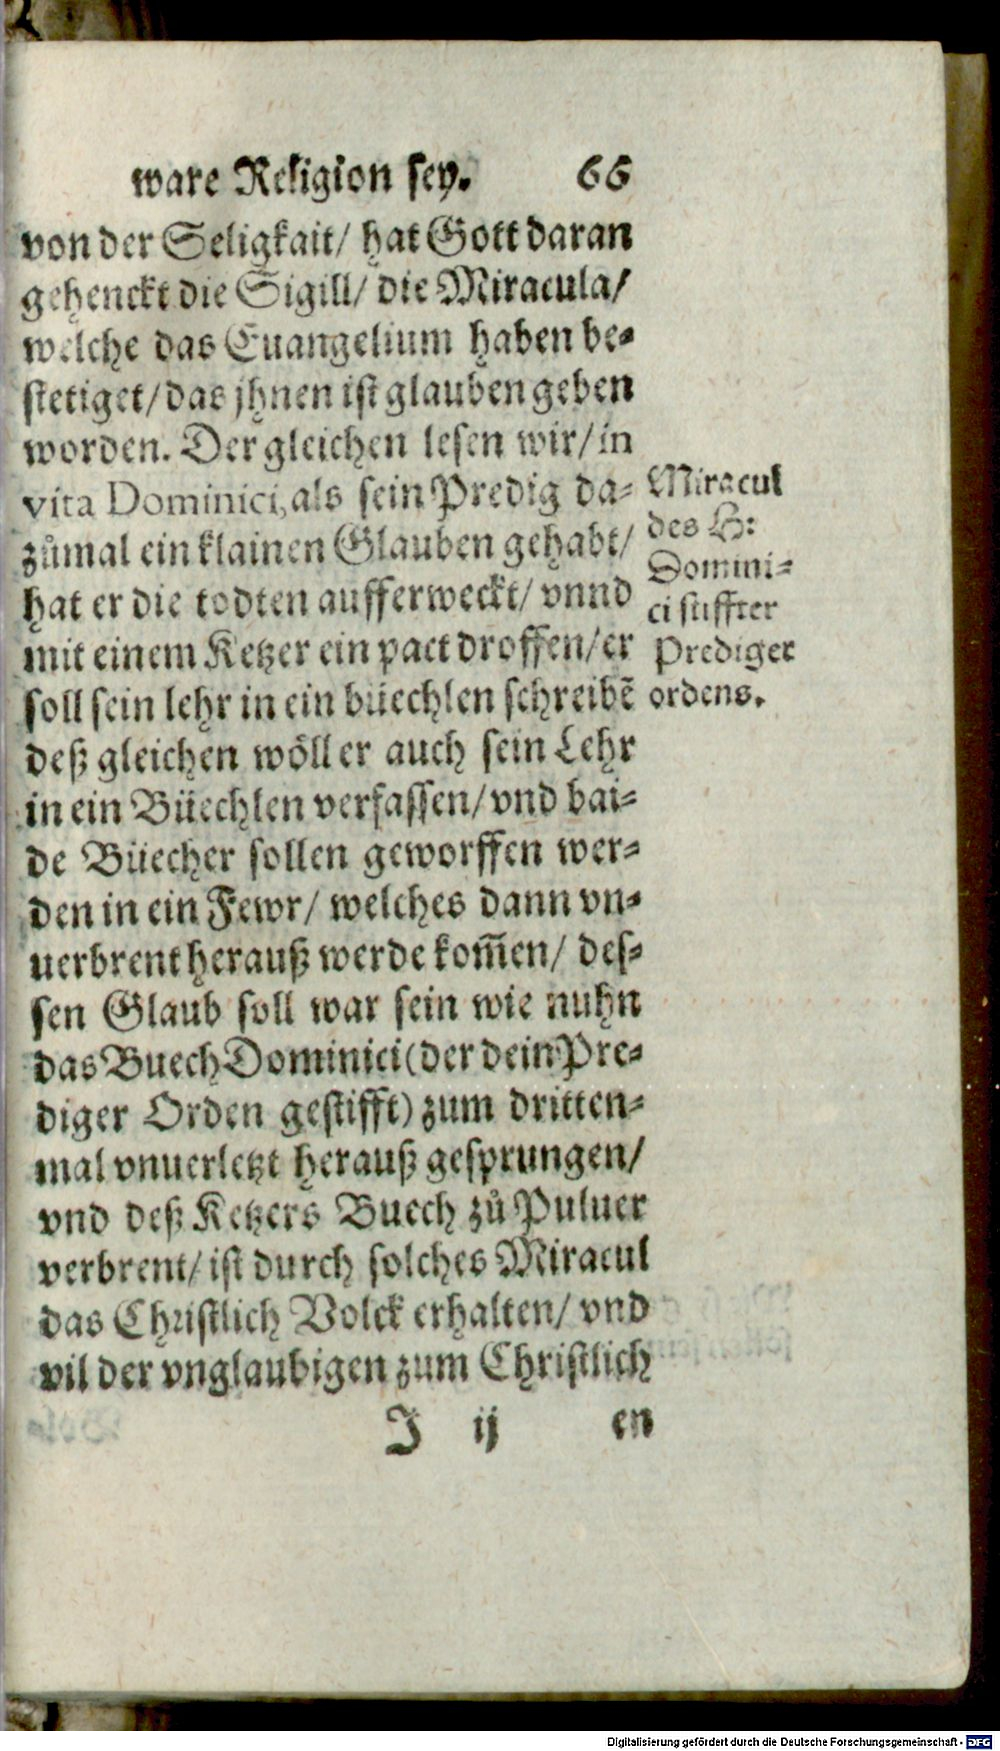 ware Religion sey. 66
von der Seligkait/ hat Gott daran
gehenckt die Sigill/ die Miracula/
welche das Euangelium haben be-
stetiget/ das jhnen ist glauben geben
worden. Der gleichen lesen wir/ in
vita Dominici, als sein Predig da-
zůmal ein klainen Glauben gehabt/
hat er die todten aufferweckt/ vnnd
mit einem Ketzer ein pact droffen/ er
soll sein lehr in ein büechlen schreibẽ
deß gleichen wöll er auch sein Lehr
in ein Büechlen verfassen/ vnd bai-
de Büecher sollen geworffen wer-
den in ein Fewr/ welches dann vn-
uerbrent herauß werde kom̃en/ des-
sen Glaub soll war sein wie nuhn
das Buech Dominici (der dein Pre-
diger Orden gestifft) zum dritten-
mal vnuerletzt herauß gesprungen/
vnd deß Ketzers Buech zů Puluer
verbrent/ ist durch solches Miracul
das Christlich Volck erhalten/ vnd
vil der vnglaubigen zum Christlich
J ij en
Miracul
des H:
Domini-
ci stiffter
Prediger
ordens.
Digitalisierung gefördert durch die Deutsche Forschungsgemeinschaft - DFG